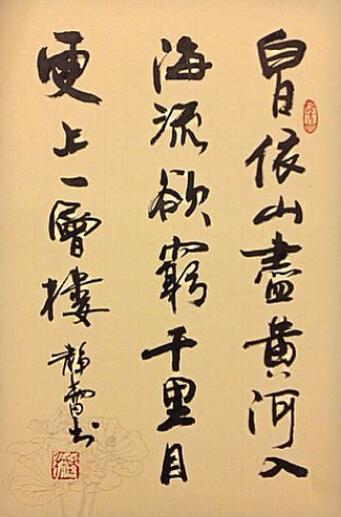 白日依山盡黄河入
海流欲窮千里目
更上一層樓
靜雲书